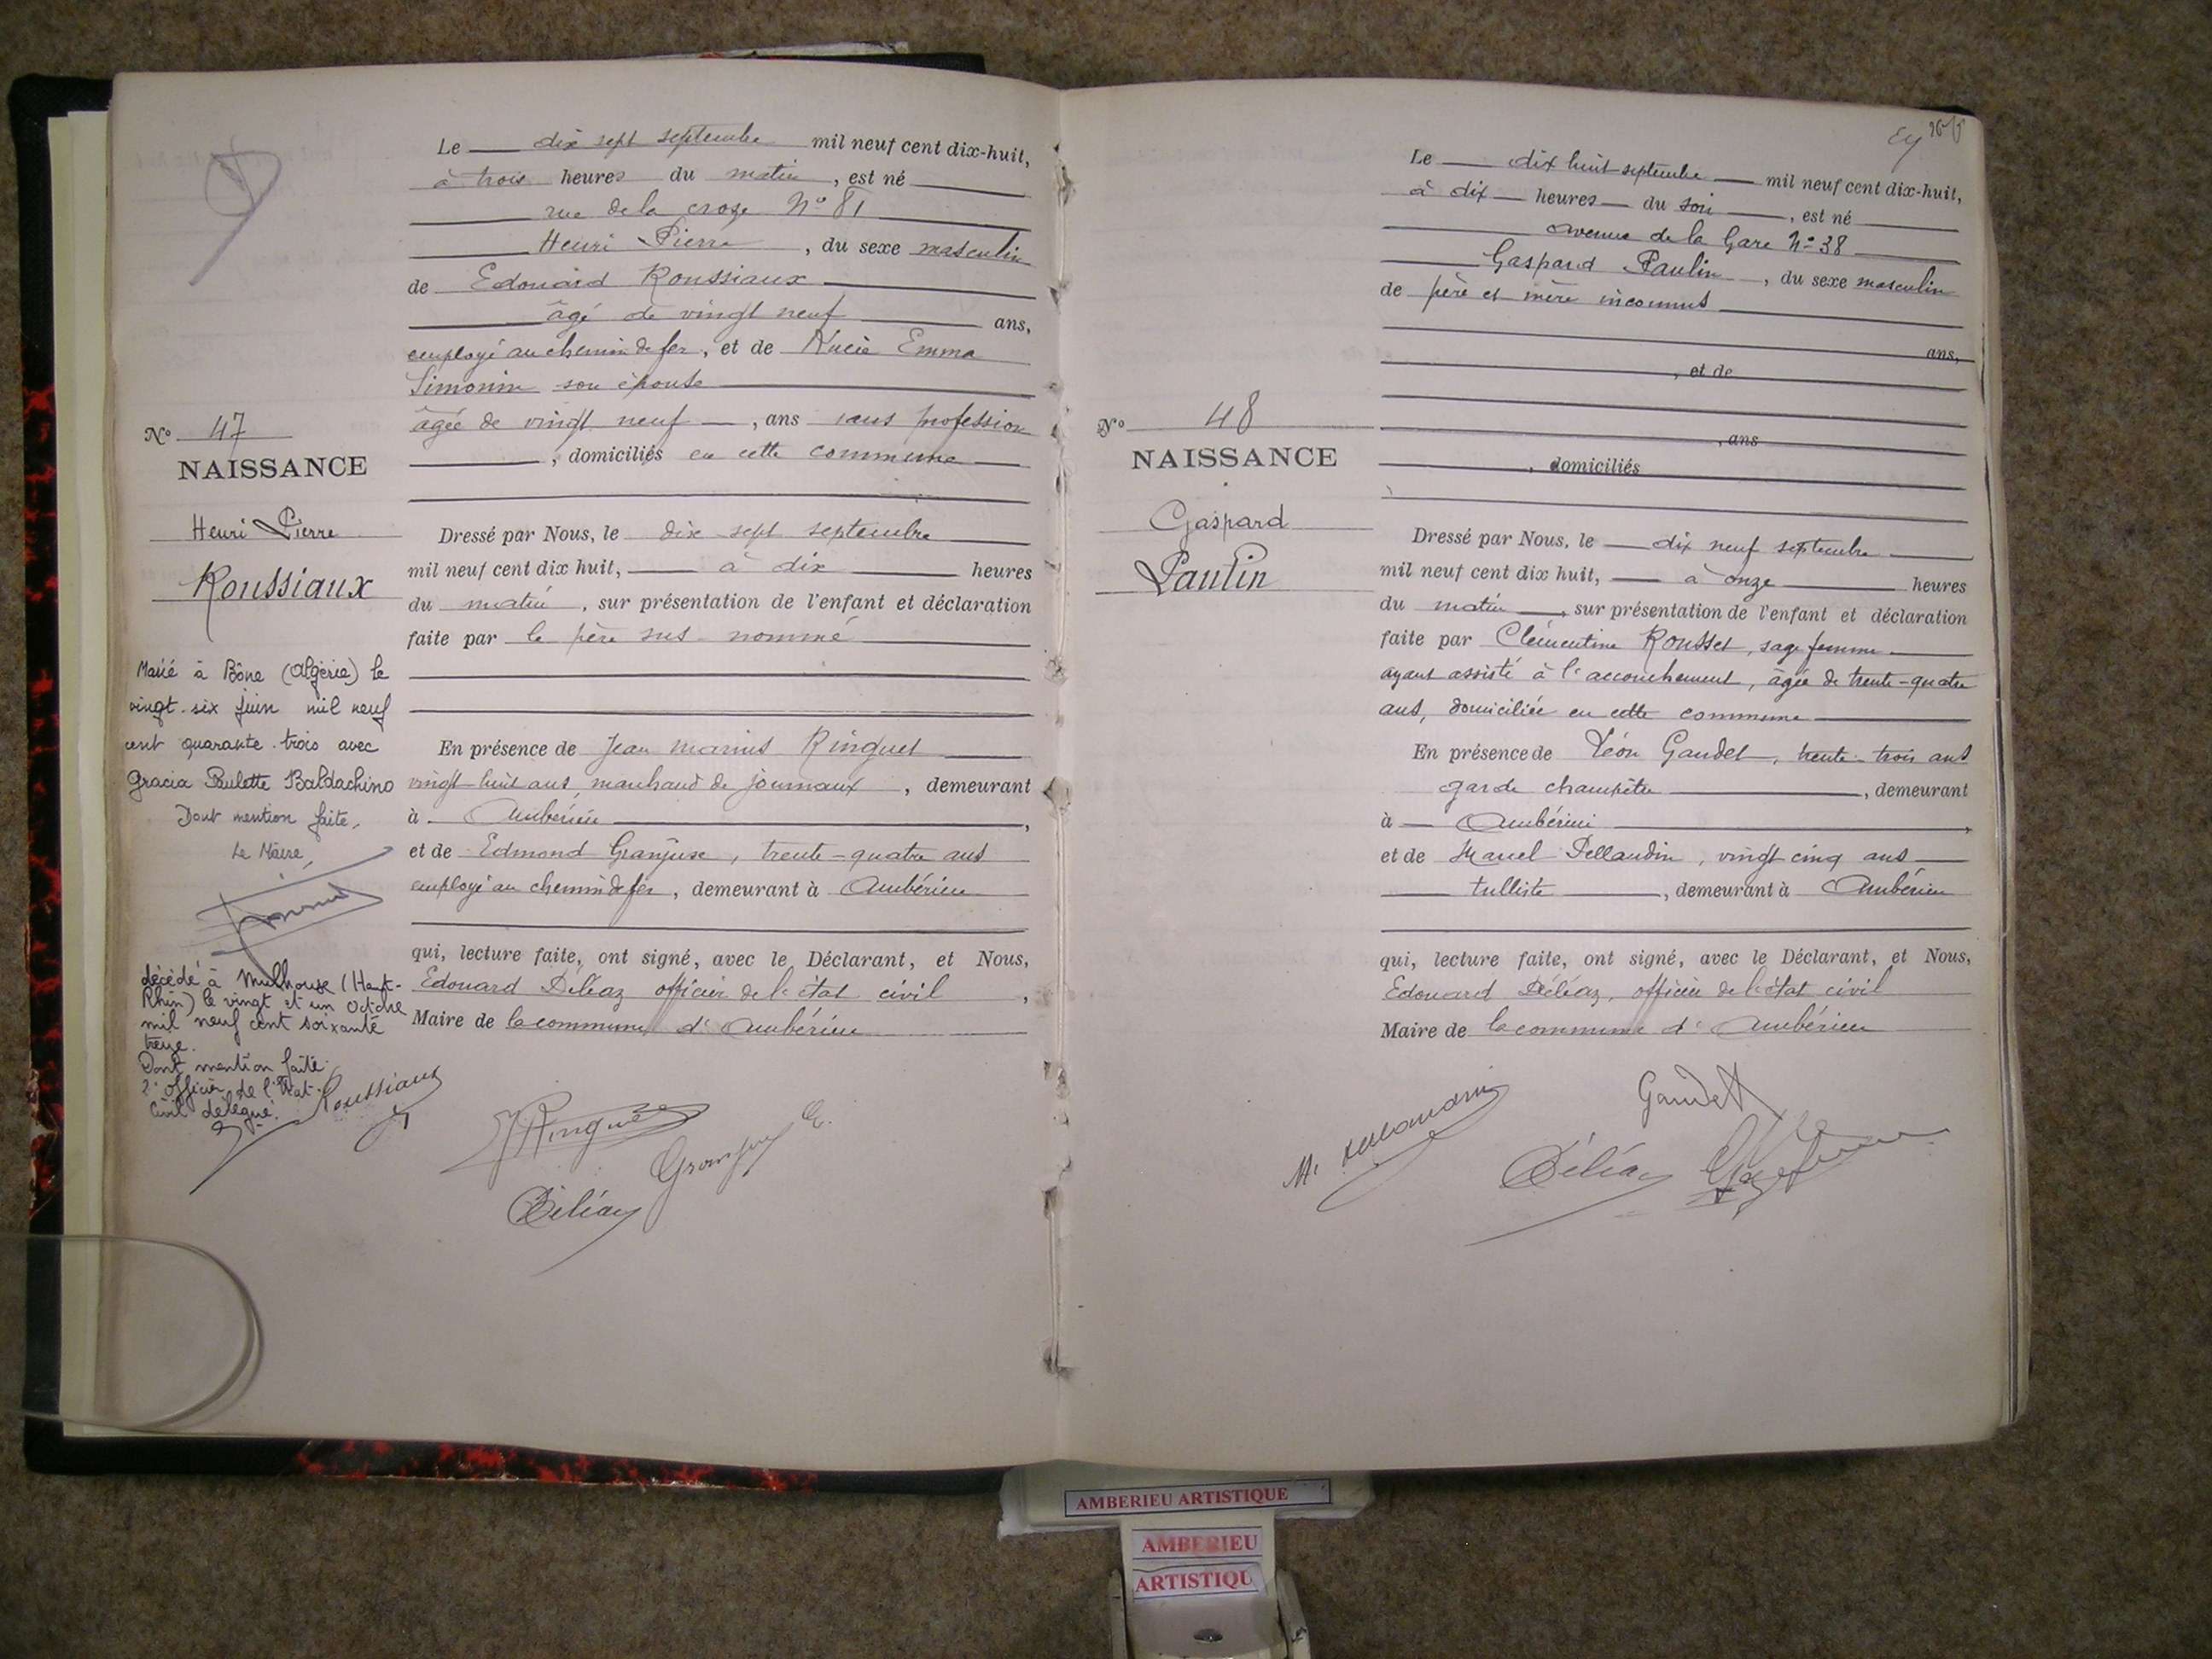 Le dix sept septembre mil neuf cent dix-huit,
à trois heures du matin, est né
rue de la croze N° 81
Henri Pierre, du sexe masculin
de Edouard Roussiaux
âgé de vingt neuf ans,
employé au chemin de fer, et de Lucie Emma
Simonin son épouse
âgée de vingt neuf, ans sans profession
, domiciliés en cette commune
N° 47
NAISSANCE
Henri Pierre
Roussiaux
Dressé par Nous, le dix sept septembre
mil neuf cent dix huit, à dix heures
du matin, sur présentation de l'enfant et déclaration
faite par le père sus-nommé
En présence de Jean Marius Ringuet
vingt-huit ans, marchand de journaux, demeurant
à Ambérieu,
et de Edmond Granjux, trente-quatre ans
employé au chemin de fer, demeurant à Ambérieu
qui, lecture faite, ont signé, avec le Déclarant, et Nous,
Edouard Déléaz officier de l'état civil,
Maire de la commune d'Ambérieu
Marié à Bône (Algérie) le
vingt-six juin mil neuf
cent quarante-trois avec
Gracia Paulette Baldachino
Dont mention faite,
Le Maire,
décédé à Mulhouse (Haut-
Rhin) le vingt et un Octobre
mil neuf cent soixante
treize.
Dont mention faite.
L'officier de l'Etat
Civil délégué.
Roussiaux
Ringuet
Déléaz
Le dix huit septembre mil neuf cent dix-huit,
à dix heures du soir, est né
avenue de la Gare N° 38
Gaspard Paulin, du sexe masculin
de père et mère inconnus
ans,
, et de
, ans
, domiciliés
N° 48
NAISSANCE
Gaspard
Paulin
Dressé par Nous, le dix neuf septembre
mil neuf cent dix huit, à onze heures
du matin, sur présentation de l'enfant et déclaration
faite par Clémentine Rousset, sage femme
ayant assisté à l'accouchement, âgée de trente-quatre
ans, domiciliée en cette commune
En présence de Léon Gaudet, trente-trois ans
garde champêtre, demeurant
à Ambérieu,
et de Marcel Pellaudin, vingt cinq ans
tulliste, demeurant à Ambérieu
qui, lecture faite, ont signé, avec le Déclarant, et Nous,
Edouard Déléaz, officier de l'état civil
Maire de la commune d'Ambérieu
Gaudet
Déléaz
AMBERIEU ARTISTIQUE
AMBERIEU
ARTISTIQU